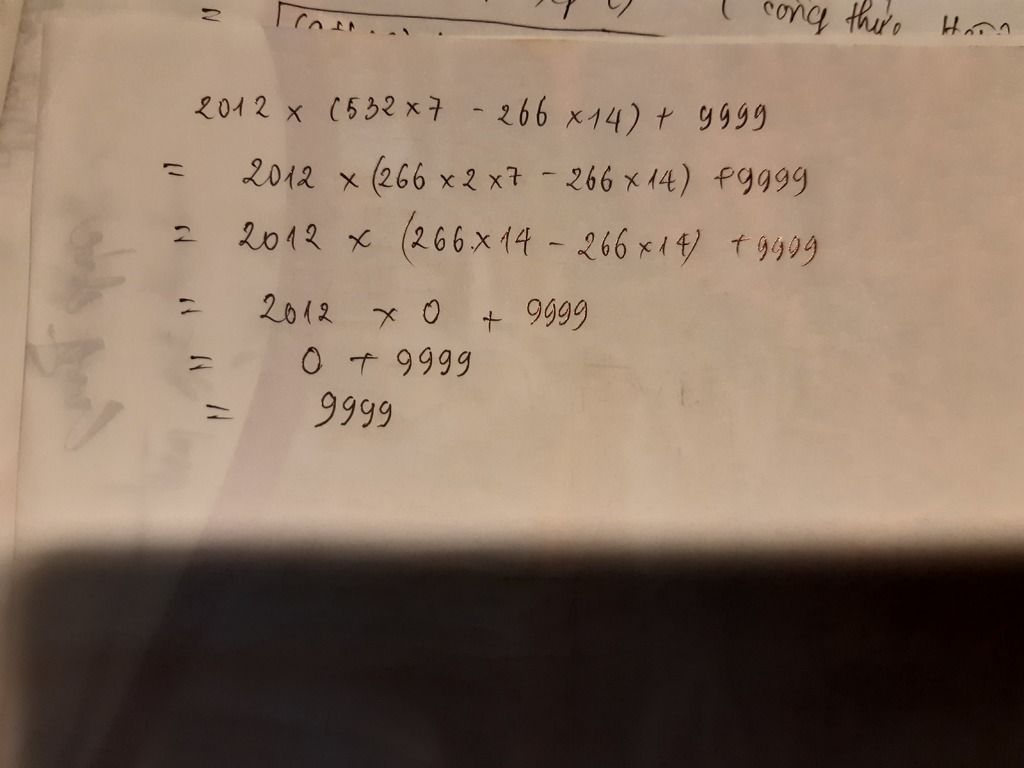 = 
( công thức
2012 x (532 x 7 - 266 x 14) + 9999
= 2012 x (266 x 2 x 7 - 266 x 14) + 9999
= 2012 x (266 x 14 - 266 x 14) + 9999
= 2012 x 0 + 9999
= 0 + 9999
= 9999